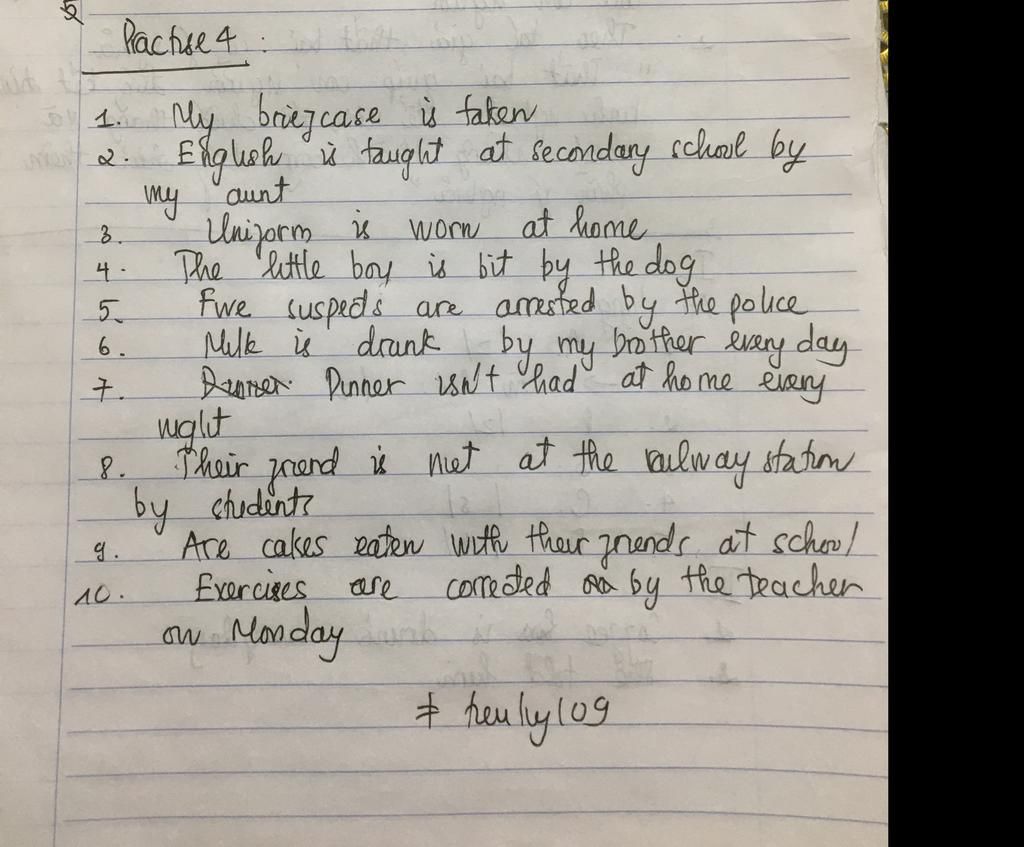 Practise 4 :
1. My briefcase is taken
2. English is taught at secondary school by
my aunt
3. Uniform is worn at home
4. The little boy is bit by the dog
5. Five suspects are arrested by the police
6. Milk is drunk by my brother every day
7. Dinner isn't had at home every
night
8. Their friend is met at the railway station
by students
9. Are cakes eaten with their friends at school
10. Exercises are corrected by the teacher
on Monday